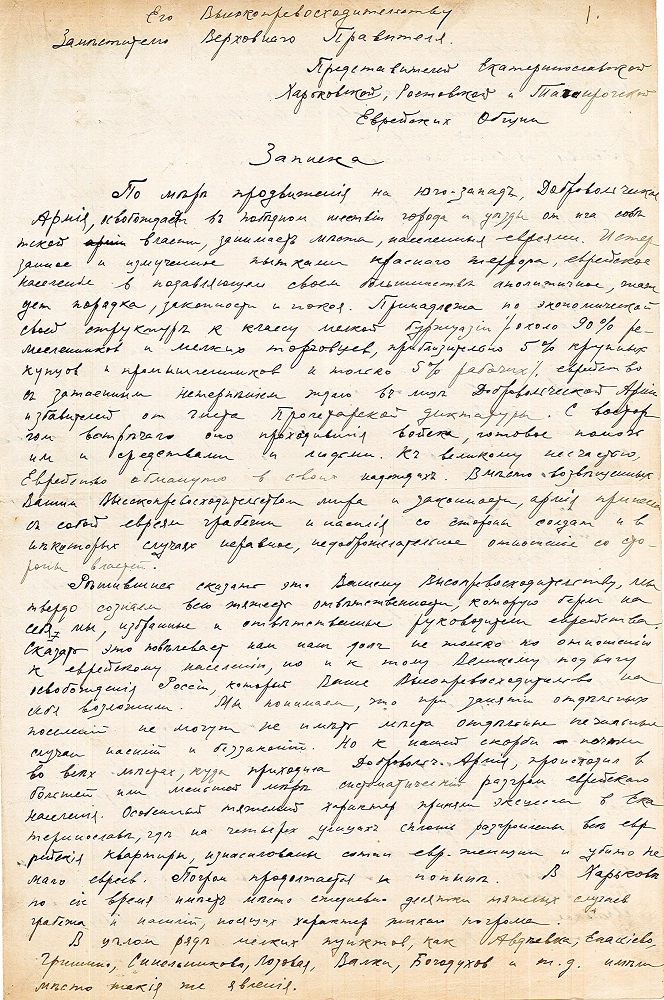 1.
Его Высокопревосходительству
Заместителю Верховнаго Правителя.
Представителей Екатеринославской
Харьковской, Ростовской и Таганрогской
Еврейских Общин
Записка
По мѣрѣ продвиженiя на юго-западъ, Добровольческая
Армiя, освобождая въ победном шествiи города и уѣзды от ига совѣ
тской власти, занимаетъ мѣста, населенныя евреями. Истер
занное и измученное пытками краснаго террора, еврейское
населенiе в подавляющем своем большинствѣ аполитичное, жаж
дет порядка, законности и покоя. Принадлежа по экономической
своей структурѣ к классу мелкой буржуазiи /около 90% ре-
месленников и мелких торговцев, приблизительно 5% крупных
купцов и промышленников и только 5% рабочих/, еврейство
съ затаенным нетерпѣнiем ждало въ лицѣ Добровольческой Армiи
избавителей от гнета Пролетарской диктатуры. С востор
гом встрѣчало оно проходившiя войска, готовое помочь
им и средствами и людьми. Къ великому несчастью,
Еврейство обмануто в своих надеждахъ. Вмѣсто возвѣщенных
Вашим Высокопревосходительством мира и законности, армiя принесла
съ собой евреям грабежи и насилiя со стороны солдат и в
нѣкоторых случаях неравное, недоброжелательное отношенiе со сто-
роны властей.
Рѣшившись сказать это Вашему Высокопревосходительству, мы
твердо сознаем всю тяжесть отвѣтственности, которую берем на
себя мы, избранные и отвѣтственные руководители еврейства.
Сказать это повелѣвает нам наш долг не только по отношенiю
к еврейскому населенiю, но и к тому Великому подвигу
освобожденiя Россiи, который Ваше Высокопревосходительство на
себя возложили. Мы понимаем, что при занятiи отдѣльных
поселенiй не могут не имѣть мѣста отдѣльные печальные
случаи насилiй и беззаконiй. Но к нашей скорби почти
во всѣх мѣстах, куда приходила Добровольч. Армiя, происходил в
большей или меньшей мѣрѣ систематическiй разгром еврейскаго
населенiя. Особенный тяжелый характер приняли эксцессы в Ека
теринославѣ, гдѣ на четырех улицах сплошь разгромлены всѣ евр
ейскiя квартиры, изнасилованы сотни евр. женщин и убито не
мало евреев. Погром продолжается и понынѣ. В Харьковѣ
по сiе время имѣют мѣсто ежедневно десятки тяжелых случаев
грабежа и насилiй, носящих характер тихаго погрома.
В цѣлом рядѣ мелких пунктов, как Авдѣевка, Енакiево,
Гришино, Синельниково, Лозовая, Валки, Богодухов и т.д. имѣли
мѣсто такiя же явленiя.